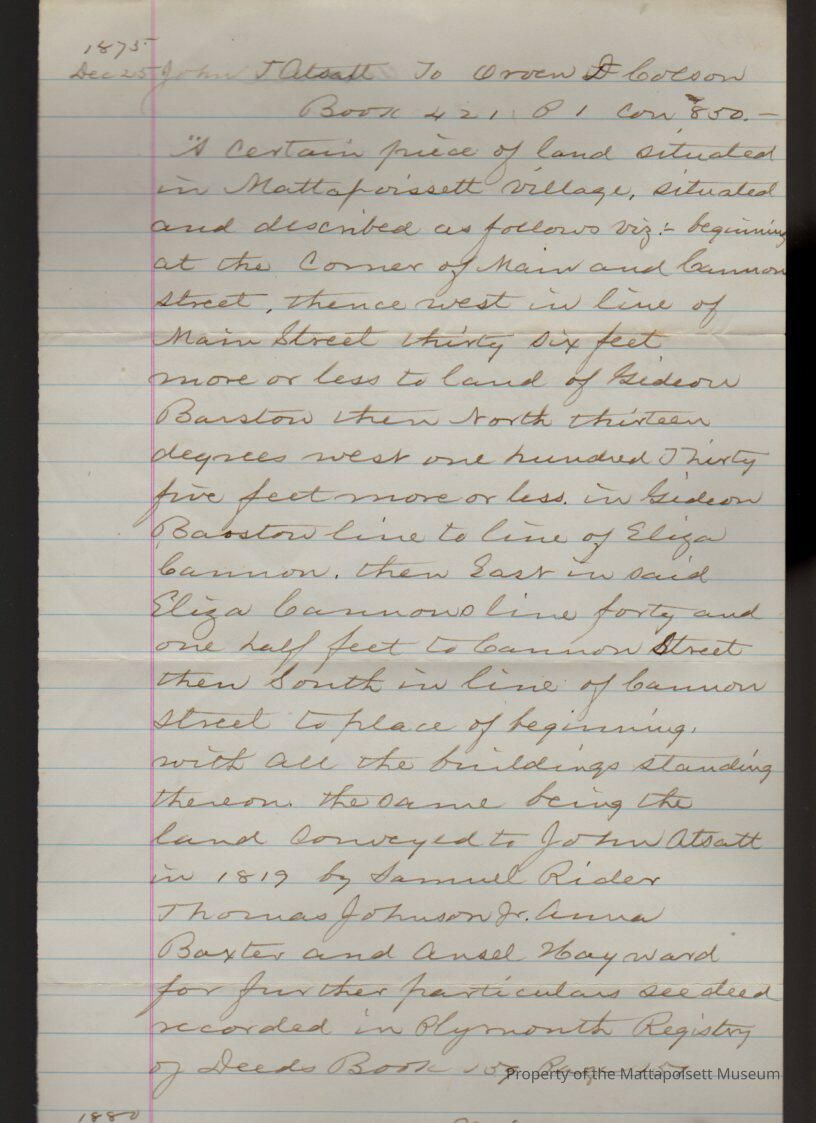 1875
Dec 25 John T Atsatt To Orven D Colson
Book 421 P 1 Con 850.-
"A Certain piece of land situated
in Mattapoissett Village, situated
and described as follows viz:- beginning
at the Corner of Main and Cannon
street, thence west in line of
Main Street thirty six feet
more or less to land of Gideon
Barstow then North thirteen
degrees west one hundred Thirty
five feet more or less. in Gideon
Barstow line to line of Eliza
Cannon. then East in said
Eliza Cannons line forty and
one half feet to Cannon Street
then South in line of Cannon
street to place of beginning.
with all the buildings standing
thereon. the same being the
land Conveyed to John Atsatt
in 1819 by Samuel Rider
Thomas Johnson Jr. Anna
Baxter and Ansel Hayward
for further particulars see deed
recorded in Plymouth Registry
of Deeds Book
Property of the Mattapoisett Museum
1880